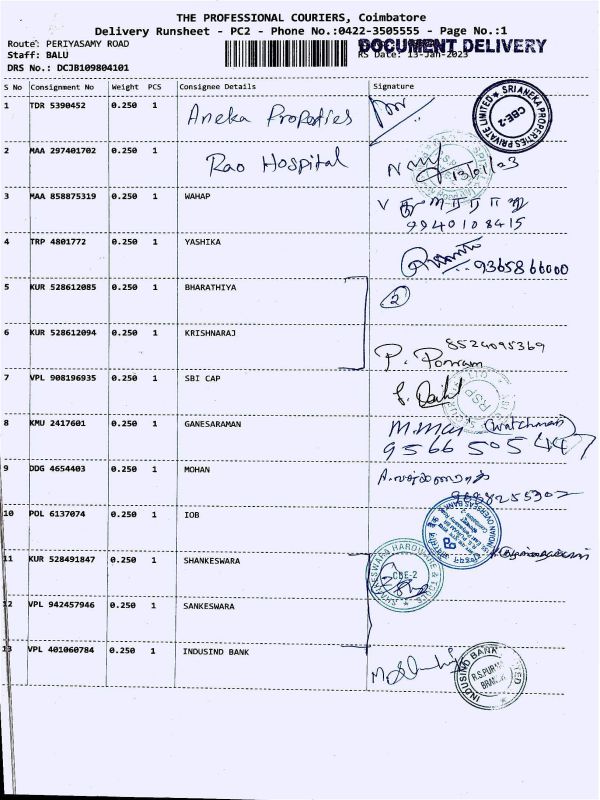 THE PROFESSIONAL COURIERS, Coimbatore
Delivery Runsheet - PC2 - Phone No.:0422-3505555 - Page No.:1
Route: PERIYASAMY ROAD
DOCUMENT DELIVERY
Staff: BALU
RS Date: 13-Jan-2023
DRS No.: DCJB109804101
S No Consignment No Weight PCS Consignee Details Signature
1 TDR 5390452 0.250 1 Aneka Properties
SRI ANEKA PROPERTIES PRIVATE LIMITED CBE-2
2 MAA 297401702 0.250 1 Rao Hospital
13/01/23
3 MAA 858875319 0.250 1 WAHAP
9940108415
4 TRP 4801772 0.250 1 YASHIKA
9365866000
5 KUR 528612085 0.250 1 BHARATHIYA
2
6 KUR 528612094 0.250 1 KRISHNARAJ
8524095369
P. Ponram
7 VPL 908196935 0.250 1 SBI CAP
RSP
8 KMU 2417601 0.250 1 GANESARAMAN
M.Mar (Watchman)
9566505447
9 DDG 4654403 0.250 1 MOHAN
10 POL 6137074 0.250 1 IOB
INDIAN OVERSEAS BANK
11 KUR 528491847 0.250 1 SHANKESWARA
SHANKESWARA HARDWARE & TOOLS CBE-2
12 VPL 942457946 0.250 1 SANKESWARA
13 VPL 401060784 0.250 1 INDUSIND BANK
INDUSIND BANK LIMITED R.S.PURAM BRANCH